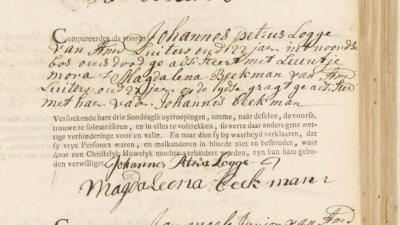 Compareerden als vooren Johannes petrus Logge
van Amd Luiters oud 22 jaer in't noords
bos ouders dood ge ad sisteert met Leuntje
mora & Magdalena Beekman van Amd
Luiters oud 27 jaer op de Lydse gragt ge adsisteer
met haer vader Johannes Beekman
Versoekende hare drie Sondaagse uytroepingen, omme, naar deselve, de voorsz.
trouwe te solemniseren, en in alles te voltrekken, so verre daar anders gene wet-
tige verhinderinge voor en valle. En mar dien sy by waarheyd verklaarden, dat
sy vrye Personen waren, en malkanderen in bloede niet en bestonden, waar
door een Christelyk Huwelyk mochte verhindert worden, zyn hun hare gebo-
den verwilliget.
Johannes Petrus Logge
Magdaleena Beekman